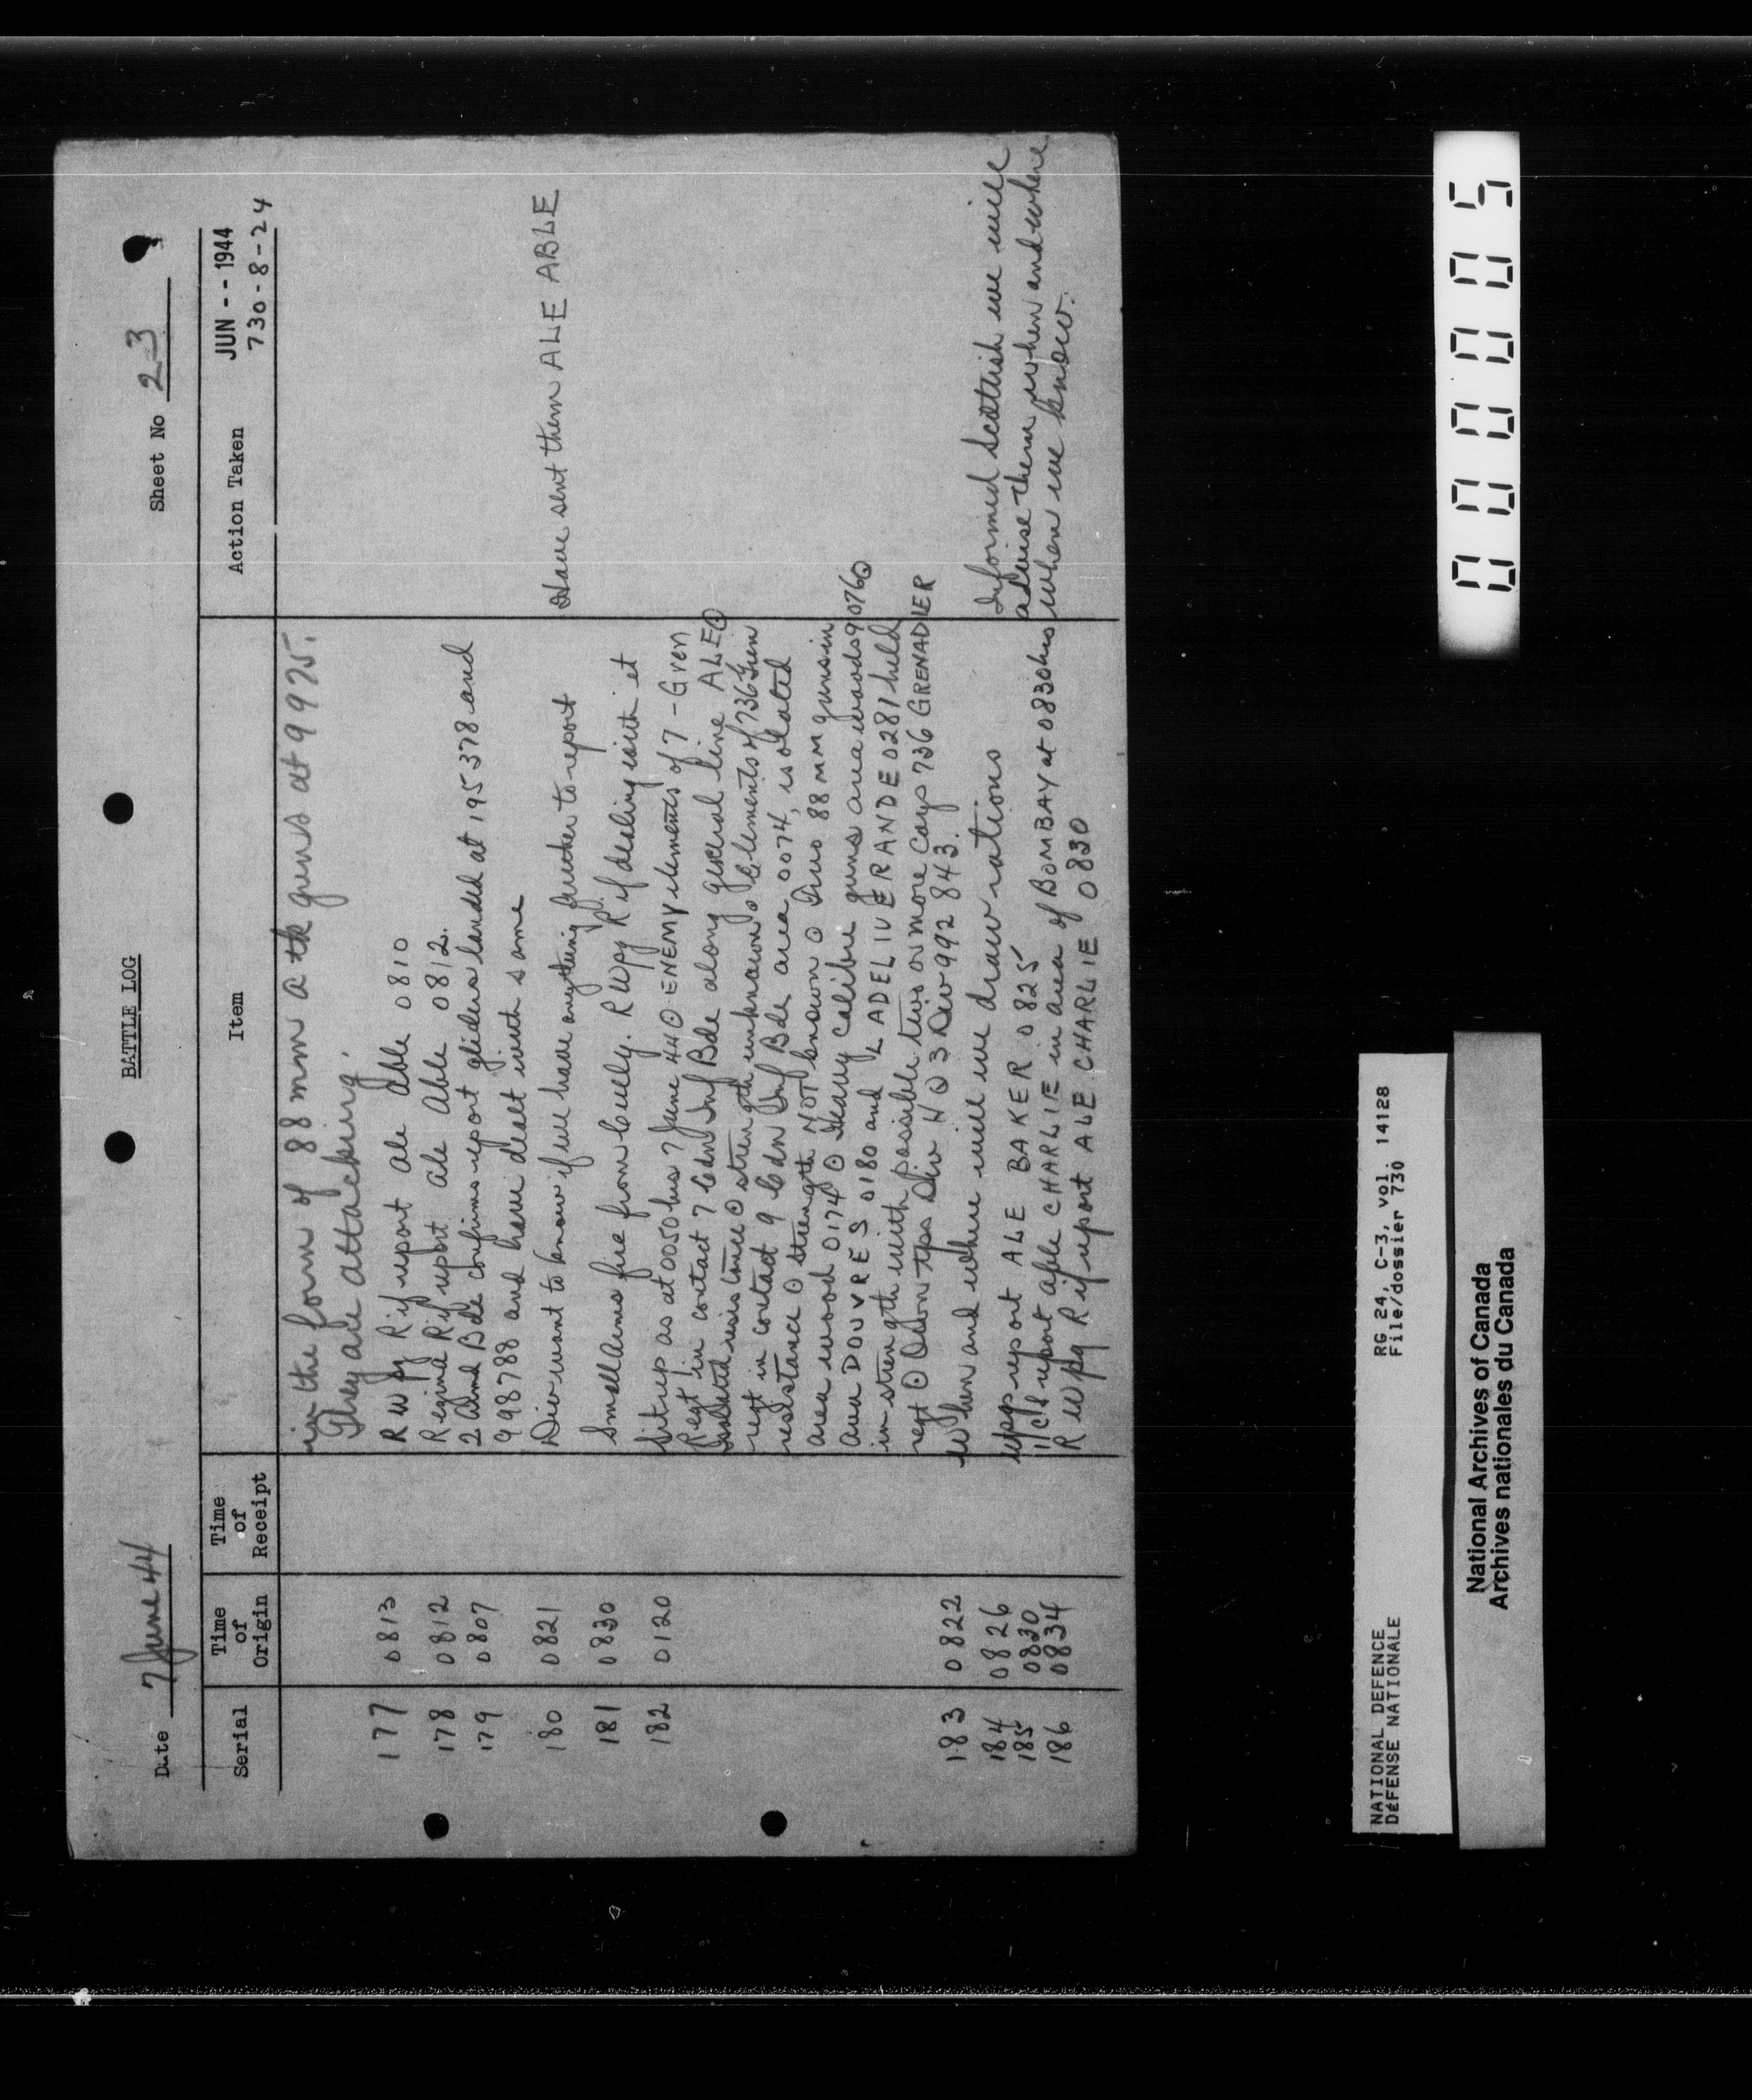 BATTLE LOG
Date 7 June 44
Sheet No 23
Serial
Time of Origin
Time of Receipt
Item
Action Taken
JUN -- 1944
730-8-24
in the form of 88 mm a tk guns at 9925.
They are attacking.
177 0813 R Wpg Rif report ale able 0810
178 0812 Regina Rif report ale able 0812.
179 0807 2 Armd Bde confirms report gliders landed at 195378 and
998788 and have dealt with same
180 0821 Div want to know if we have anything further to report Have sent them ALE ABLE
181 0830 Small arms fire from Cully. R Wpg Rif dealing with it
182 0120 Sitrep as at 0050 hrs 7 June 44 ⊙ ENEMY elements of 7-Gren
Regt in contact 7 Cdn Inf Bde along general line ALE ⊙
Isolated resistance ⊙ strength unknown ⊙ Elements of 736 Gren
regt in contact 9 Cdn Inf Bde area 0074, isolated
resistance ⊙ strength NOT known ⊙ Two 88 MM guns in
area wood 0174 ⊙ Heavy calibre guns area woods 9076 ⊙
area DOUVRES 0180 and LADELIVERANDE 0281 held
in strength with possible two or more coys 736 GRENADIER
regt ⊙ Own tps Div HQ 3 Div 992843.
183 0822 When and where will we draw rations Informed Scottish we will
advise them when and where
when we know.
184 0826 Wpgs report ALE BAKER 0825
185 0830 1 C S report able CHARLIE in area of BOMBAY at 0830 hrs
186 0834 R Wpg Rif report ALE CHARLIE 0830
000005
NATIONAL DEFENCE
DÉFENSE NATIONALE
RG 24, C-3, vol. 14128
File/dossier 730
National Archives of Canada
Archives nationales du Canada